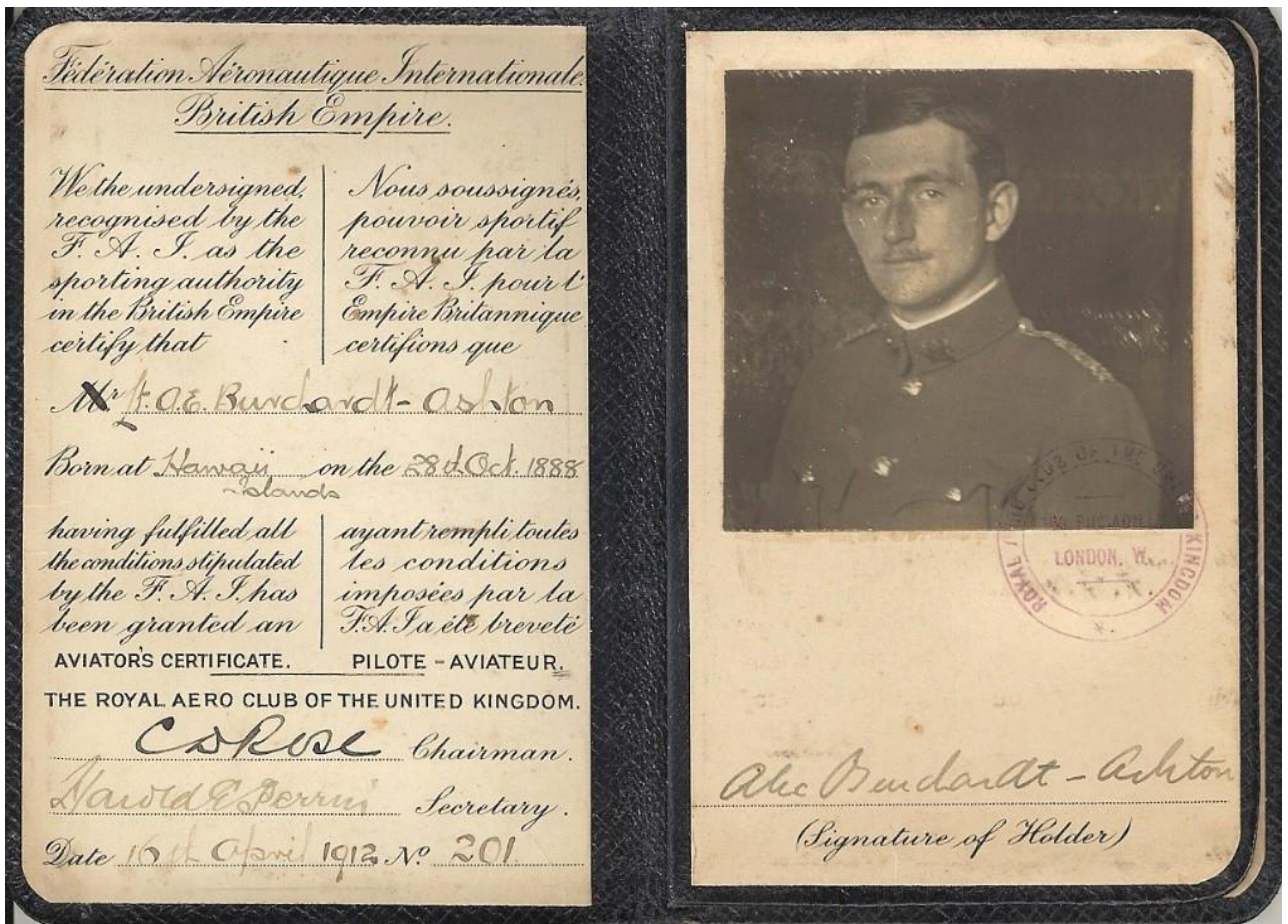 Fédération Aéronautique Internationale.
British Empire.
We the undersigned,
recognised by the
F. A. I. as the
sporting authority
in the British Empire
certify that
Nous soussignés,
pouvoir sportif
reconnu par la
F. A. I. pour l'
Empire Britannique
certifions que
Mr Lt. A.E. Burchardt-Ashton
Born at Hawaii on the 28th Oct. 1888
Islands
having fulfilled all
the conditions stipulated
by the F. A. I. has
been granted an
ayant rempli toutes
les conditions
imposées par la
F.A.I a été breveté
AVIATOR'S CERTIFICATE. PILOTE-AVIATEUR.
THE ROYAL AERO CLUB OF THE UNITED KINGDOM.
C D Rose Chairman.
Harold E Perrin Secretary.
Date 16th April 1912 No 201.
ROYAL OF THE KINGDOM
LONDON, W.
Alec Burchardt-Ashton
(Signature of Holder)